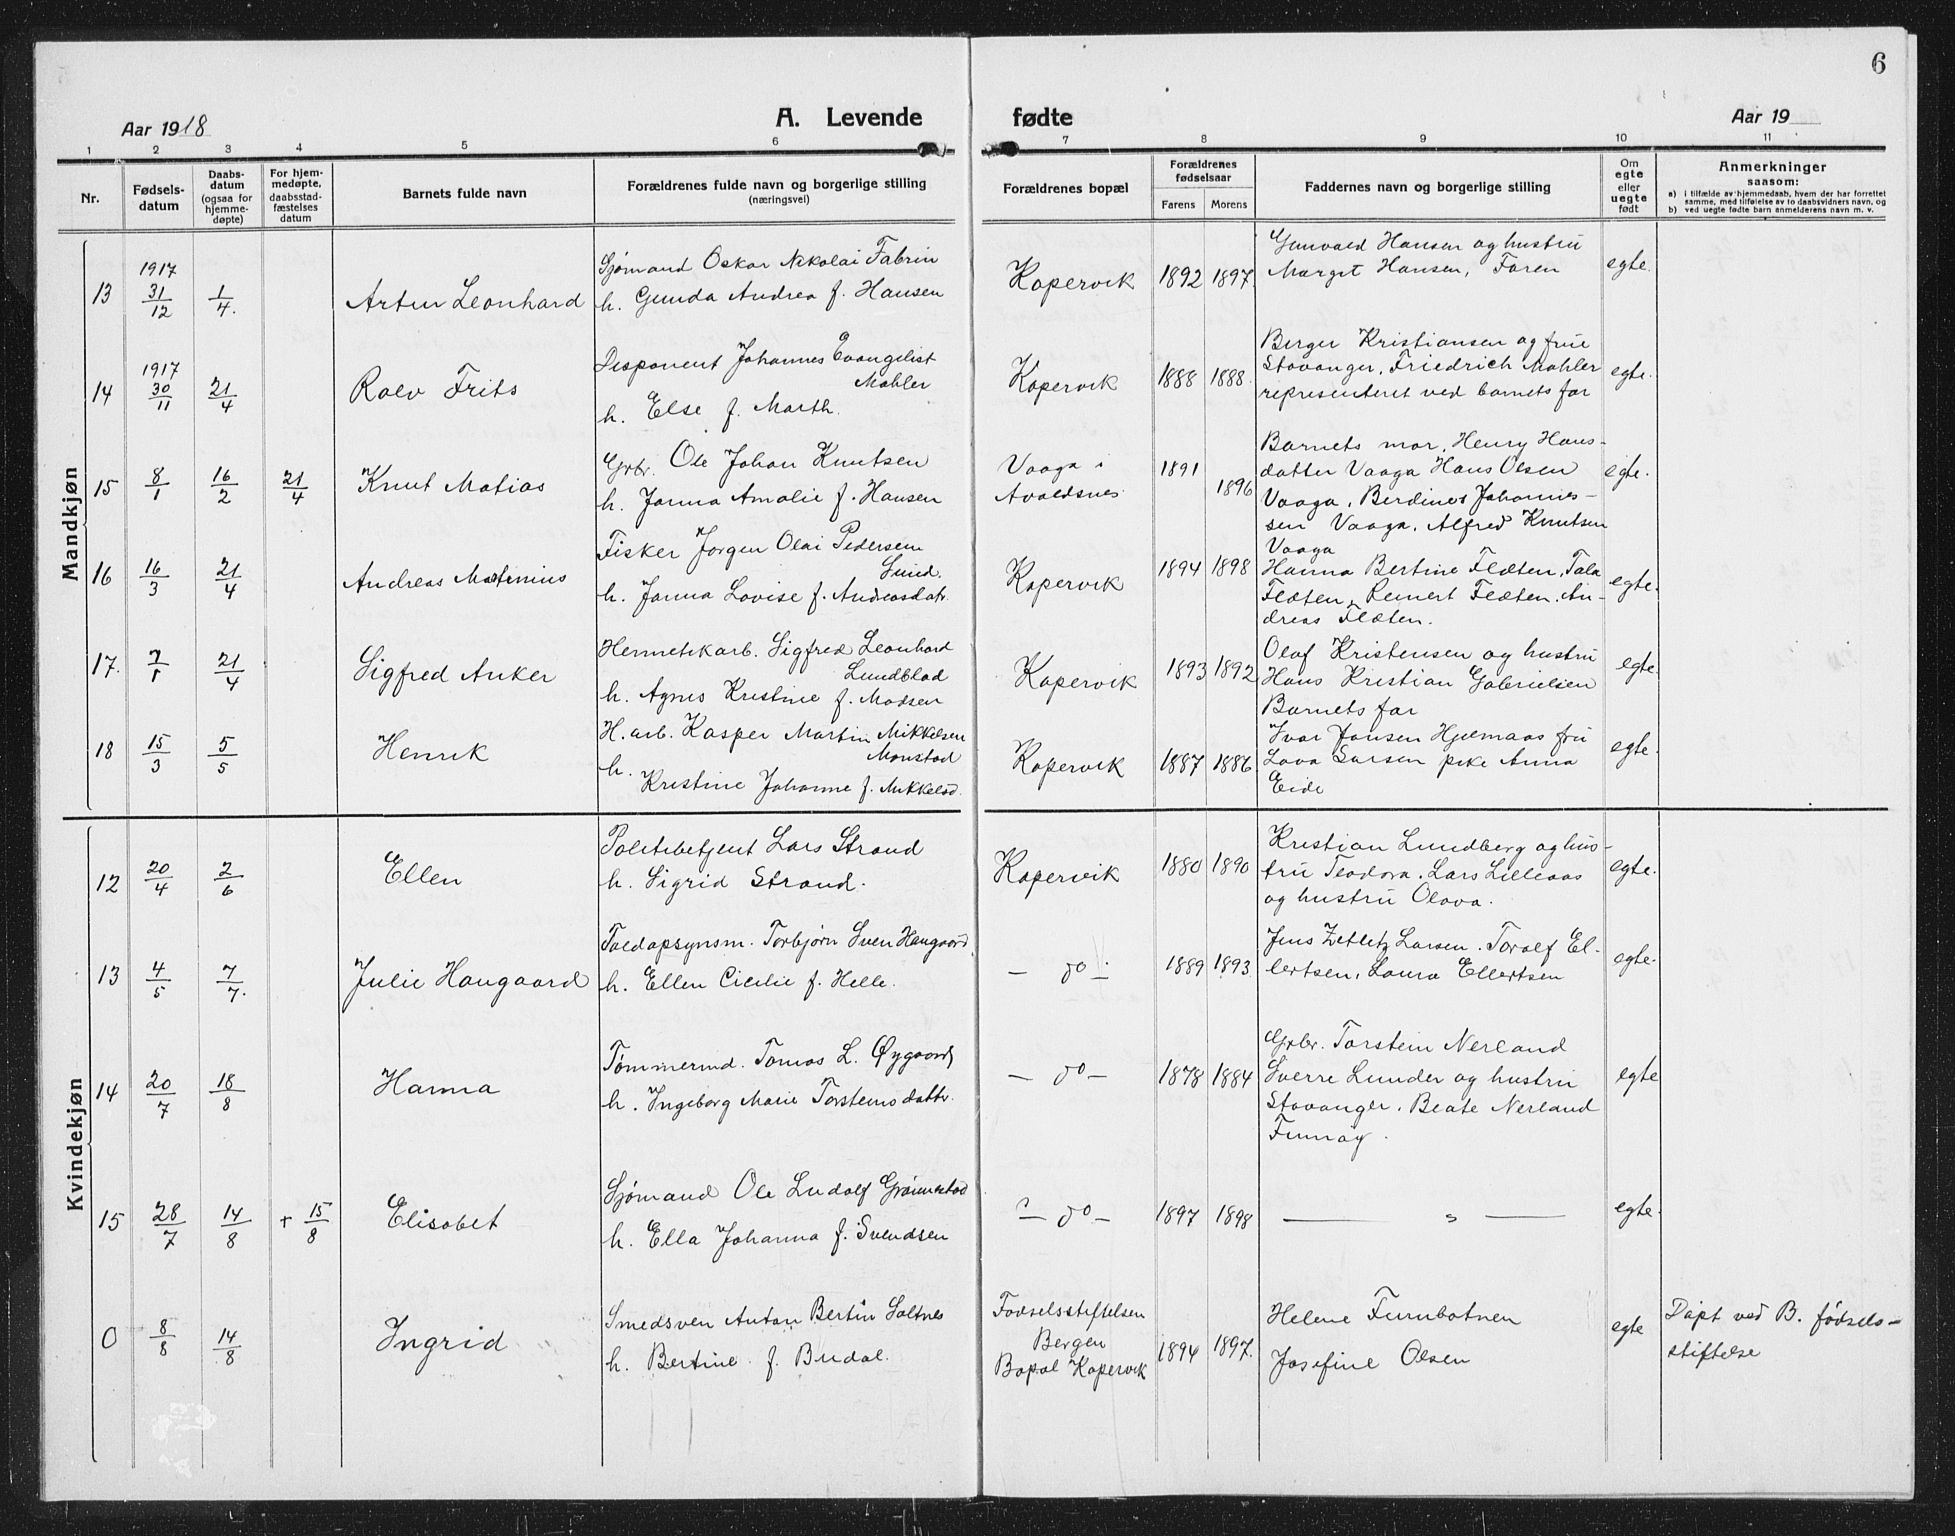 6
Aar 1918
A. Levende
fødte
Aar 19
1 2 3 4 5 6 7 8 9 10 11
Nr.
Fødsels-
datum
Daabs-
datum
(ogsaa for
hjemme-
døpte)
For hjem-
medøpte,
daabsstad-
fæstelses
datum
Barnets fulde navn
Forældrenes fulde navn og borgerlige stilling
(næringsvei)
Forældrenes bopæl
Forældrenes
fødselsaar
Farens Morens
Faddernes navn og borgerlige stilling
Om
egte
eller
uegte
født
Anmerkninger
saasom:
a) i tilfælde av hjemmedaab, hvem der har forrettet
samme, med tilføielse av to daabsvidners navn, og
b) ved uegte fødte barn anmelderens navn m. v.
Mandkjøn
13
1917
31/12
1/4.
Artur Leonhard
Sjømand Oskar Nikolai Fabrin
h. Gunda Andrea f. Hansen
Kopervik
1892 1897.
Gunvald Hansen og hustru
Margit Hansen, Faren
egte.
14
1917
30/11
21/4
Rolv Frits
Disponent Johannes Evangelist
Mohler
h. Else f. Marth.
Kopervik
1888 1888.
Berger Kristiansen og frue
Stavanger, Friedrich Mohler
representeret ved barnets far
egte.
15
8/1
16/2
21/4
Knut Matias
Grbr. Ole Johan Knutsen
h. Janna Amalie f. Hansen
Vaaga i
Avaldsnes
1891
1896
Barnets mor, Henny Hans-
datter Vaaga Hans Olsen
Vaaga, Berdines Johannes-
sen Vaaga, Alfred Knutsen
Vaaga
egte.
16
16/3
21/4
Andreas Martinius
Fisker Jørgen Olai Pedersen
Lund.
h. Janna Lovise f. Andreasdatr.
Kopervik
1894 1898
Hanna Bertine Fløten, Tala
Fløten, Reinert Fløten, An-
dreas Fløten.
egte.
17.
21/4
Sigfred Anker
Hermetikarb. Sigfred Leonhard
Lundblad
h. Agnes Kristine f. Madsen
Kopervik
1893 1892
Olaf Kristensen og hustru
Hans Kristian Gabrielsen
Barnets far
egte.
18
15/3
5/5
Henrik
H. arb. Kasper Martin Mikkelsen
Monstad
h.
Kristine Johanne f. Mikkelsd.
Kopervik
1887 1886
Ivar Jansen Hjelmaas fru
Lava Larsen pike Anna
Eide
egte.
Kvindekjøn
12
20/4
2/6
Ellen
Politibetjent Lars Strand
h. Sigrid Strand.
Kopervik
1880 1890
Kristian Lundberg og hus-
tru Teodora, Lars Lilleaas
og hustru Olava.
egte.
13
4/5
7/7.
Julie Haugaard
Toldopsynsm. Torbjørn Sven Haugaard
h. Ellen Cicilie f. Helle.
— do —
1889 1893.
Jens Zetlitz Larsen. Toralf El-
lertsen, Laura Ellertsen
egte.
14
20/7
18/8
Hanna
Tømmermd. Tomas L. Øygaard
h. Ingeborg Marie Torsteinsdattr.
— do —
1878 1884
Grbr. Torstein Nerland
Sverre Lunder og hustru
Stavanger. Beate Nerland
egte
15
28/7
14/8
+ 15/8
Elisabet
Sjømand Ole Ludolf Grønnestad
h. Ella Johanna f. Svendsen
? — do —
1897 1898
— " —
egte.
0
8/8
14/8
Ingrid
Smedsven Anton Bertin Saltnes
h. Bertine f. Budal.
Fødselsstiftelsen
Bergen
Bopæl Kopervik
1894 1897.
Helene Furubotnen
Josefine Olsen
egte
Døpt ved B. fødsels-
stiftelse